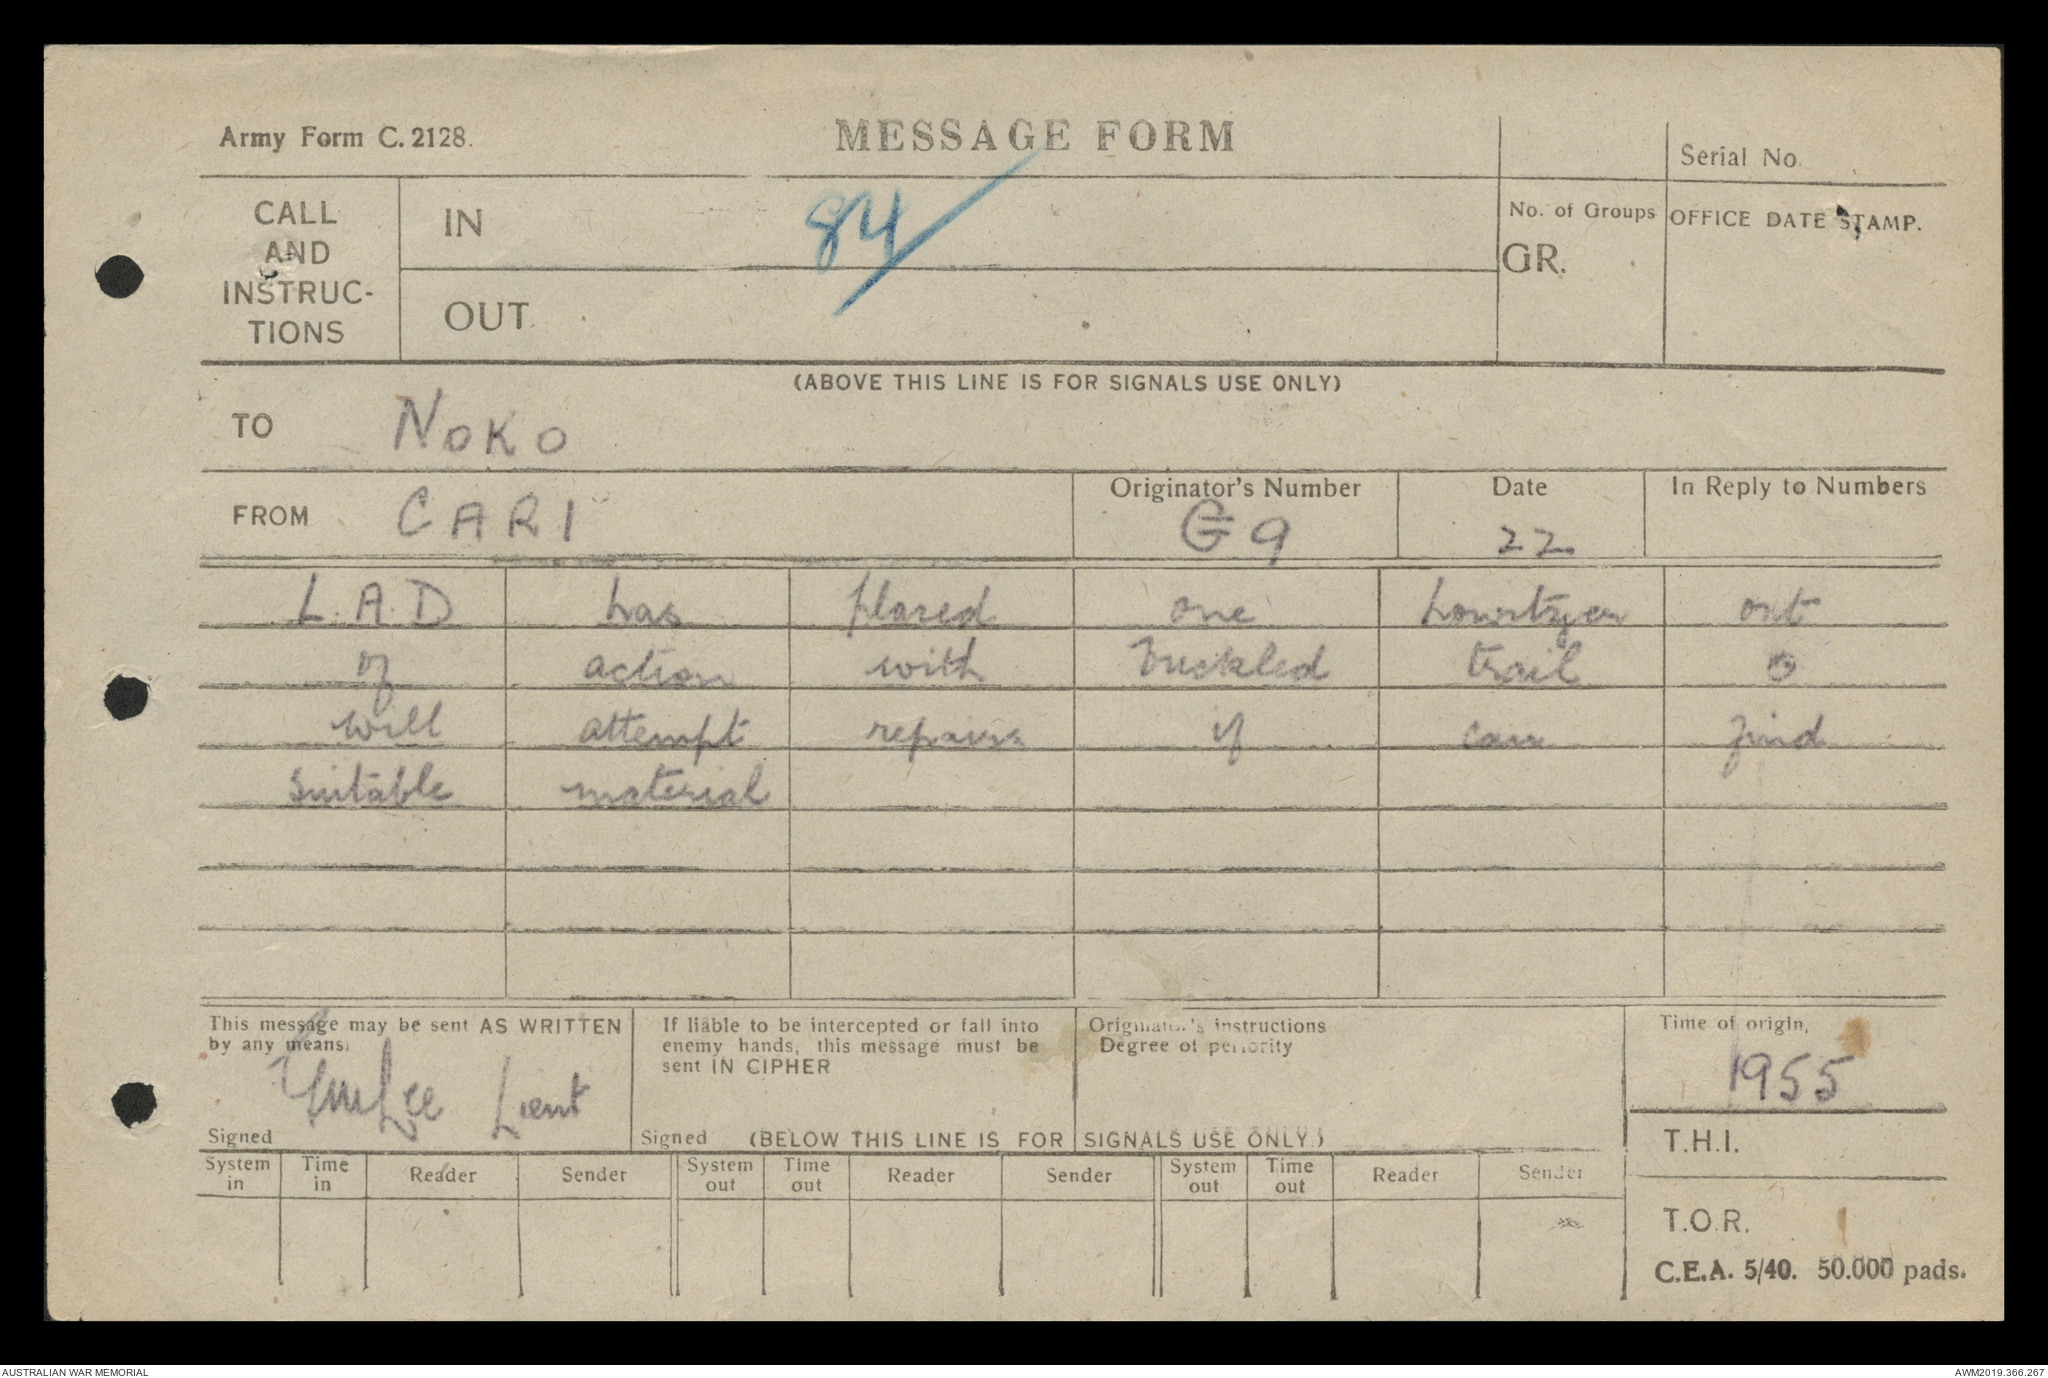 Army Form C. 2128.
MESSAGE FORM
Serial No.
CALL
AND
INSTRUC-
TIONS
IN
84
OUT
No. of Groups
GR.
OFFICE DATE STAMP.
(ABOVE THIS LINE IS FOR SIGNALS USE ONLY)
TO NOKO
FROM CARI
Originator's Number
G9
Date
22.
In Reply to Numbers
L.A.D has placed one howitzer out
of action with buckled trail o
will attempt repairs if can find
suitable material
This message may be sent AS WRITTEN
by any means.
Lee Lieut
Signed
If liable to be intercepted or fall into
enemy hands, this message must be
sent IN CIPHER
Signed
Originator's instructions
Degree of periority
Time of origin,
1955
T.H.I.
T.O.R.
(BELOW THIS LINE IS FOR SIGNALS USE ONLY.)
System in Time in Reader Sender System out Time out Reader Sender System out Time out Reader Sender
C.E.A. 5/40. 50.000 pads.
AUSTRALIAN WAR MEMORIAL
AWM2019.366.267